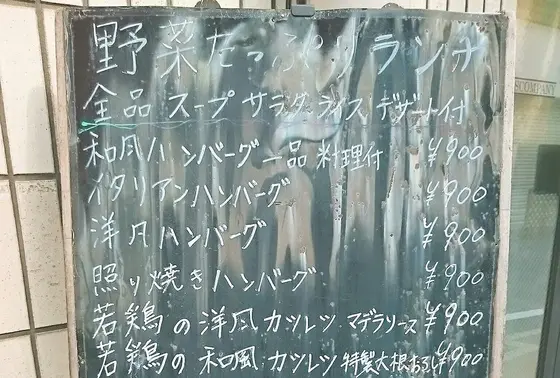 野菜たっぷりランチ
全品 スープ サラダ ライス デザート付
和風ハンバーグ 一品 料理付 ¥900
イタリアンハンバーグ ¥900
洋風ハンバーグ ¥900
照り焼きハンバーグ ¥900
若鶏の洋風カツレツ マデラソース ¥900
若鶏の和風カツレツ 特製大根おろし ¥900
COMPANY